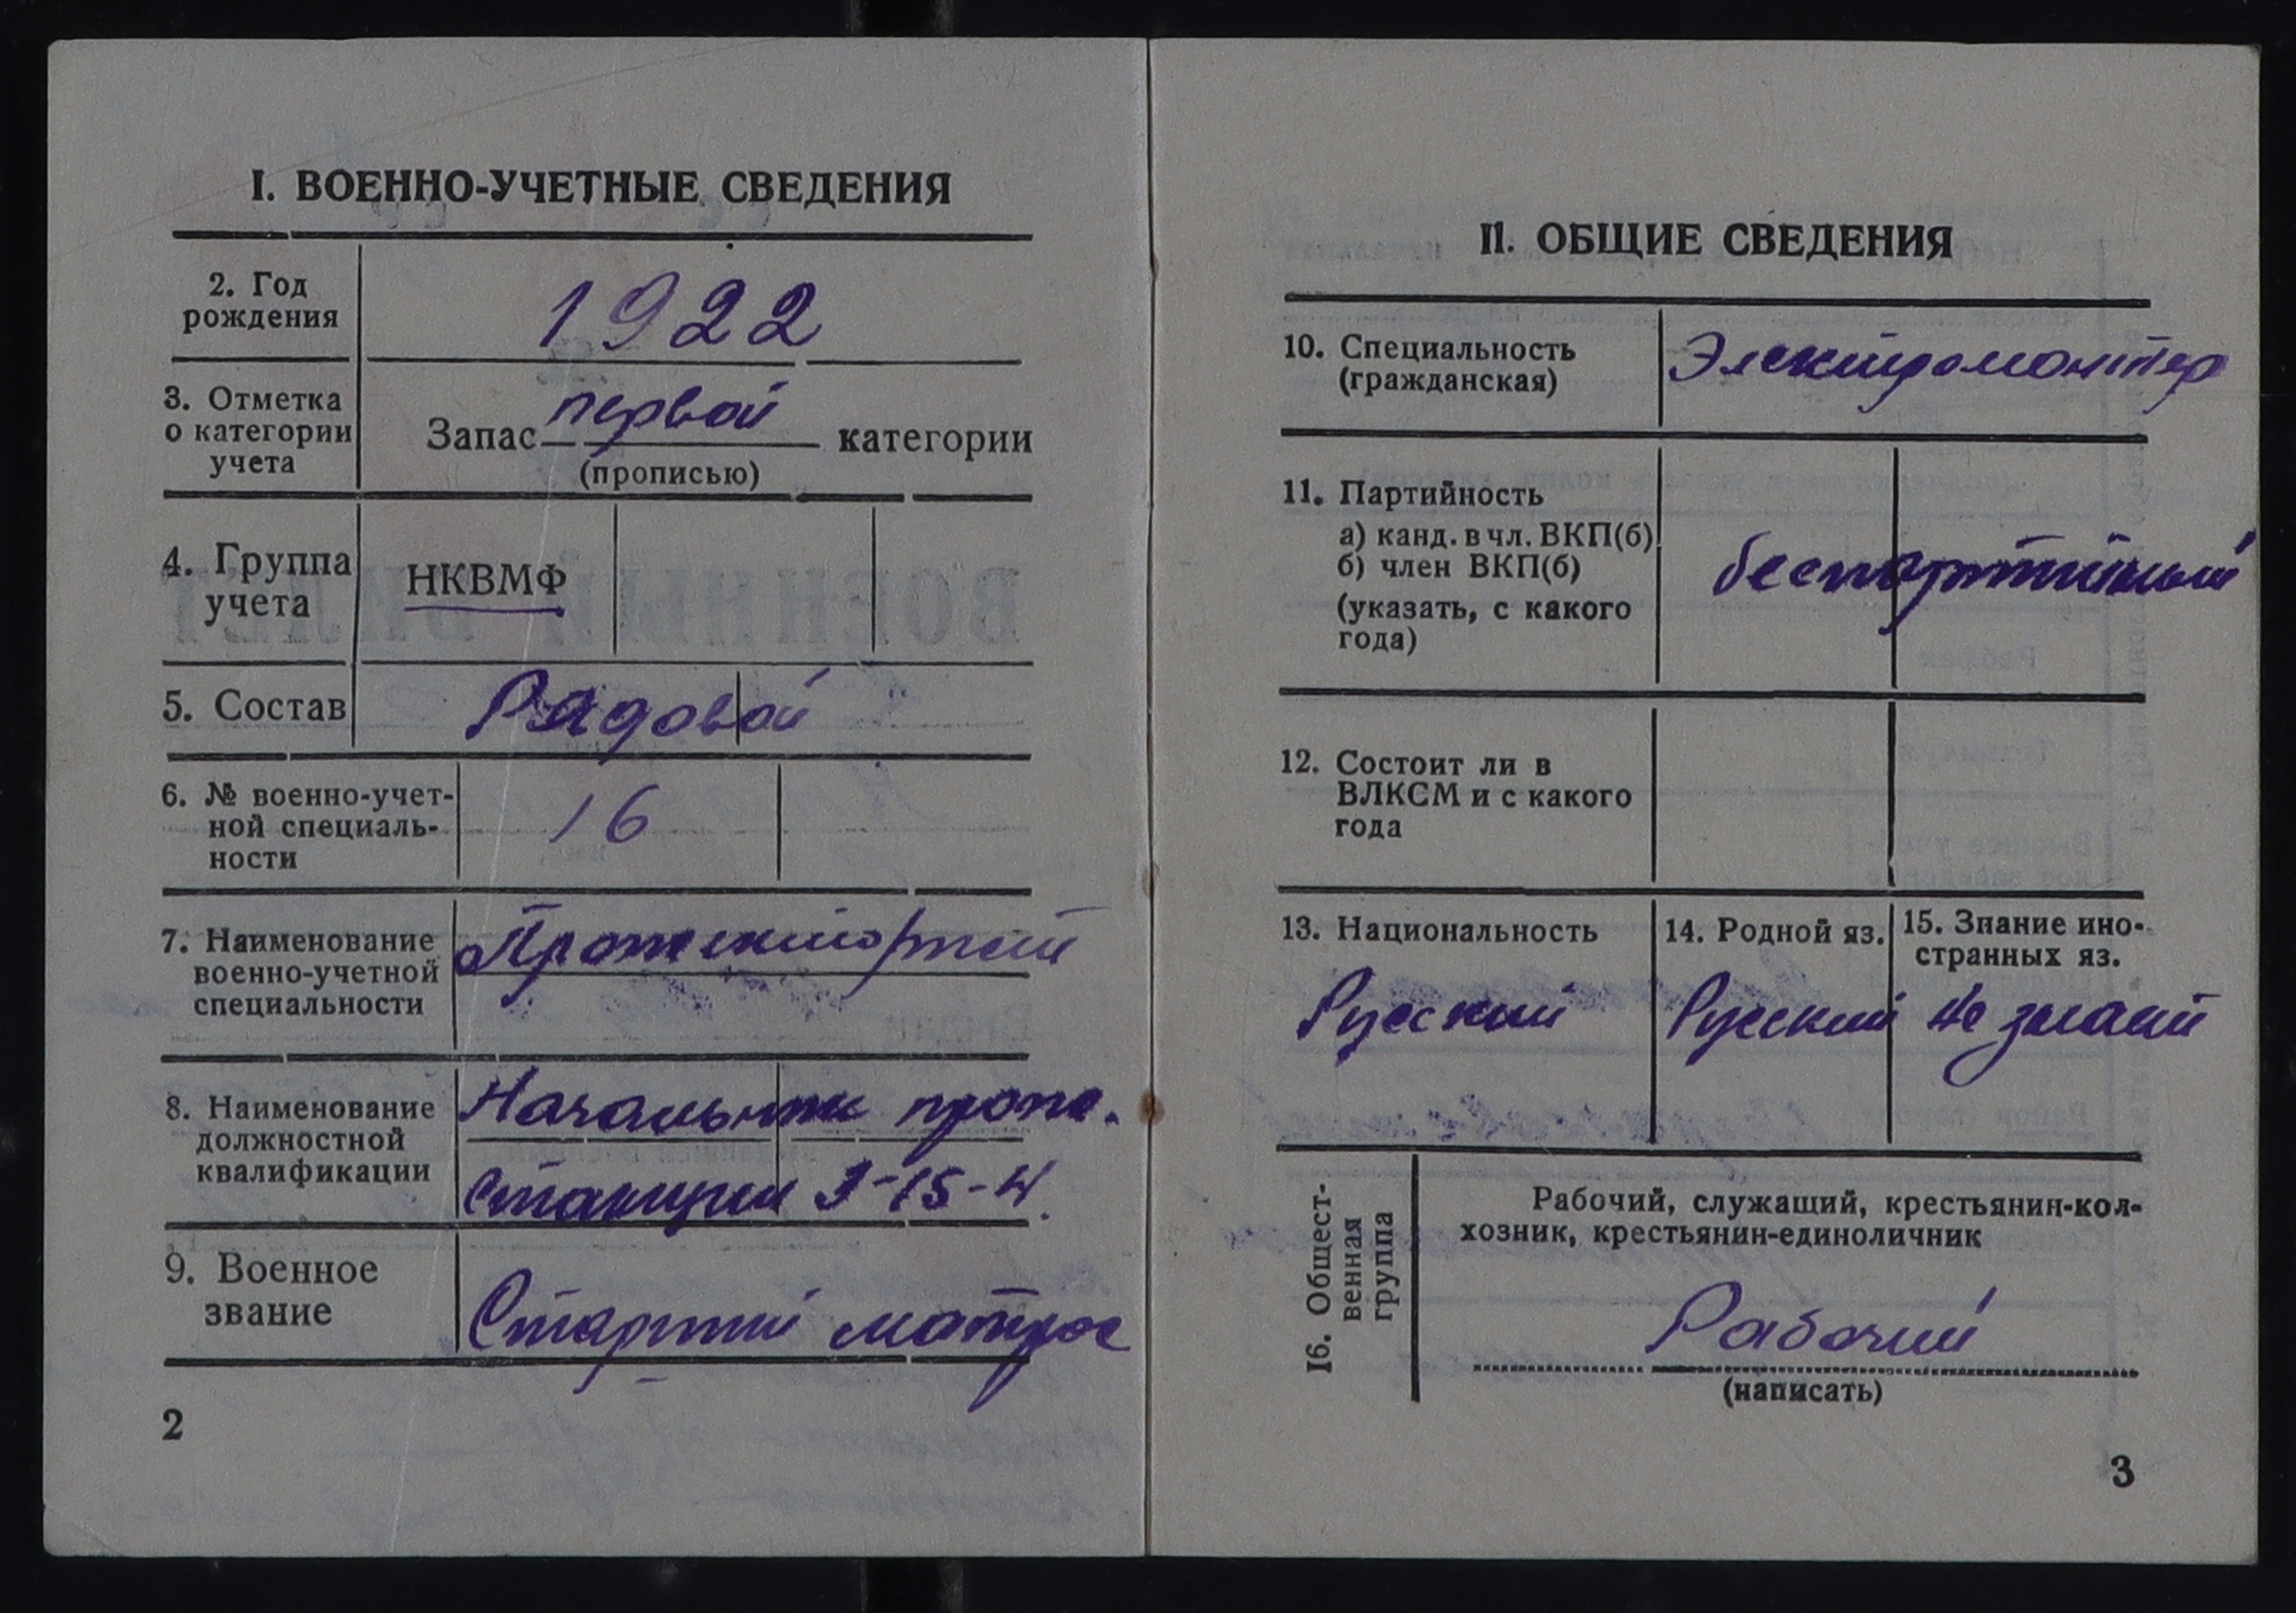 I. ВОЕННО-УЧЕТНЫЕ СВЕДЕНИЯ
2. Год
рождения
1922
3. Отметка
о категории
учета
Запас первой категории
(прописью)
4. Группа
учета
НКВМФ
5. Состав
Рядовой
6. № военно-учет-
ной специаль-
ности
16
7. Наименование
военно-учетной
специальности
Прожекторист
8. Наименование
должностной
квалификации
Начальник прож.
станции З-15-4.
9. Военное
звание
Старший матрос
2
II. ОБЩИЕ СВЕДЕНИЯ
10. Специальность
(гражданская)
Электромонтер
11. Партийность
а) канд. в чл. ВКП(б)
б) член ВКП(б)
(указать, с какого
года)
беспартийный
12. Состоит ли в
ВЛКСМ и с какого
года
13. Национальность
Русский
14. Родной яз.
Русский
15. Знание ино-
странных яз.
Не знает
16. Общест-
венная
группа
Рабочий, служащий, крестьянин-кол-
хозник, крестьянин-единоличник
Рабочий
(написать)
3